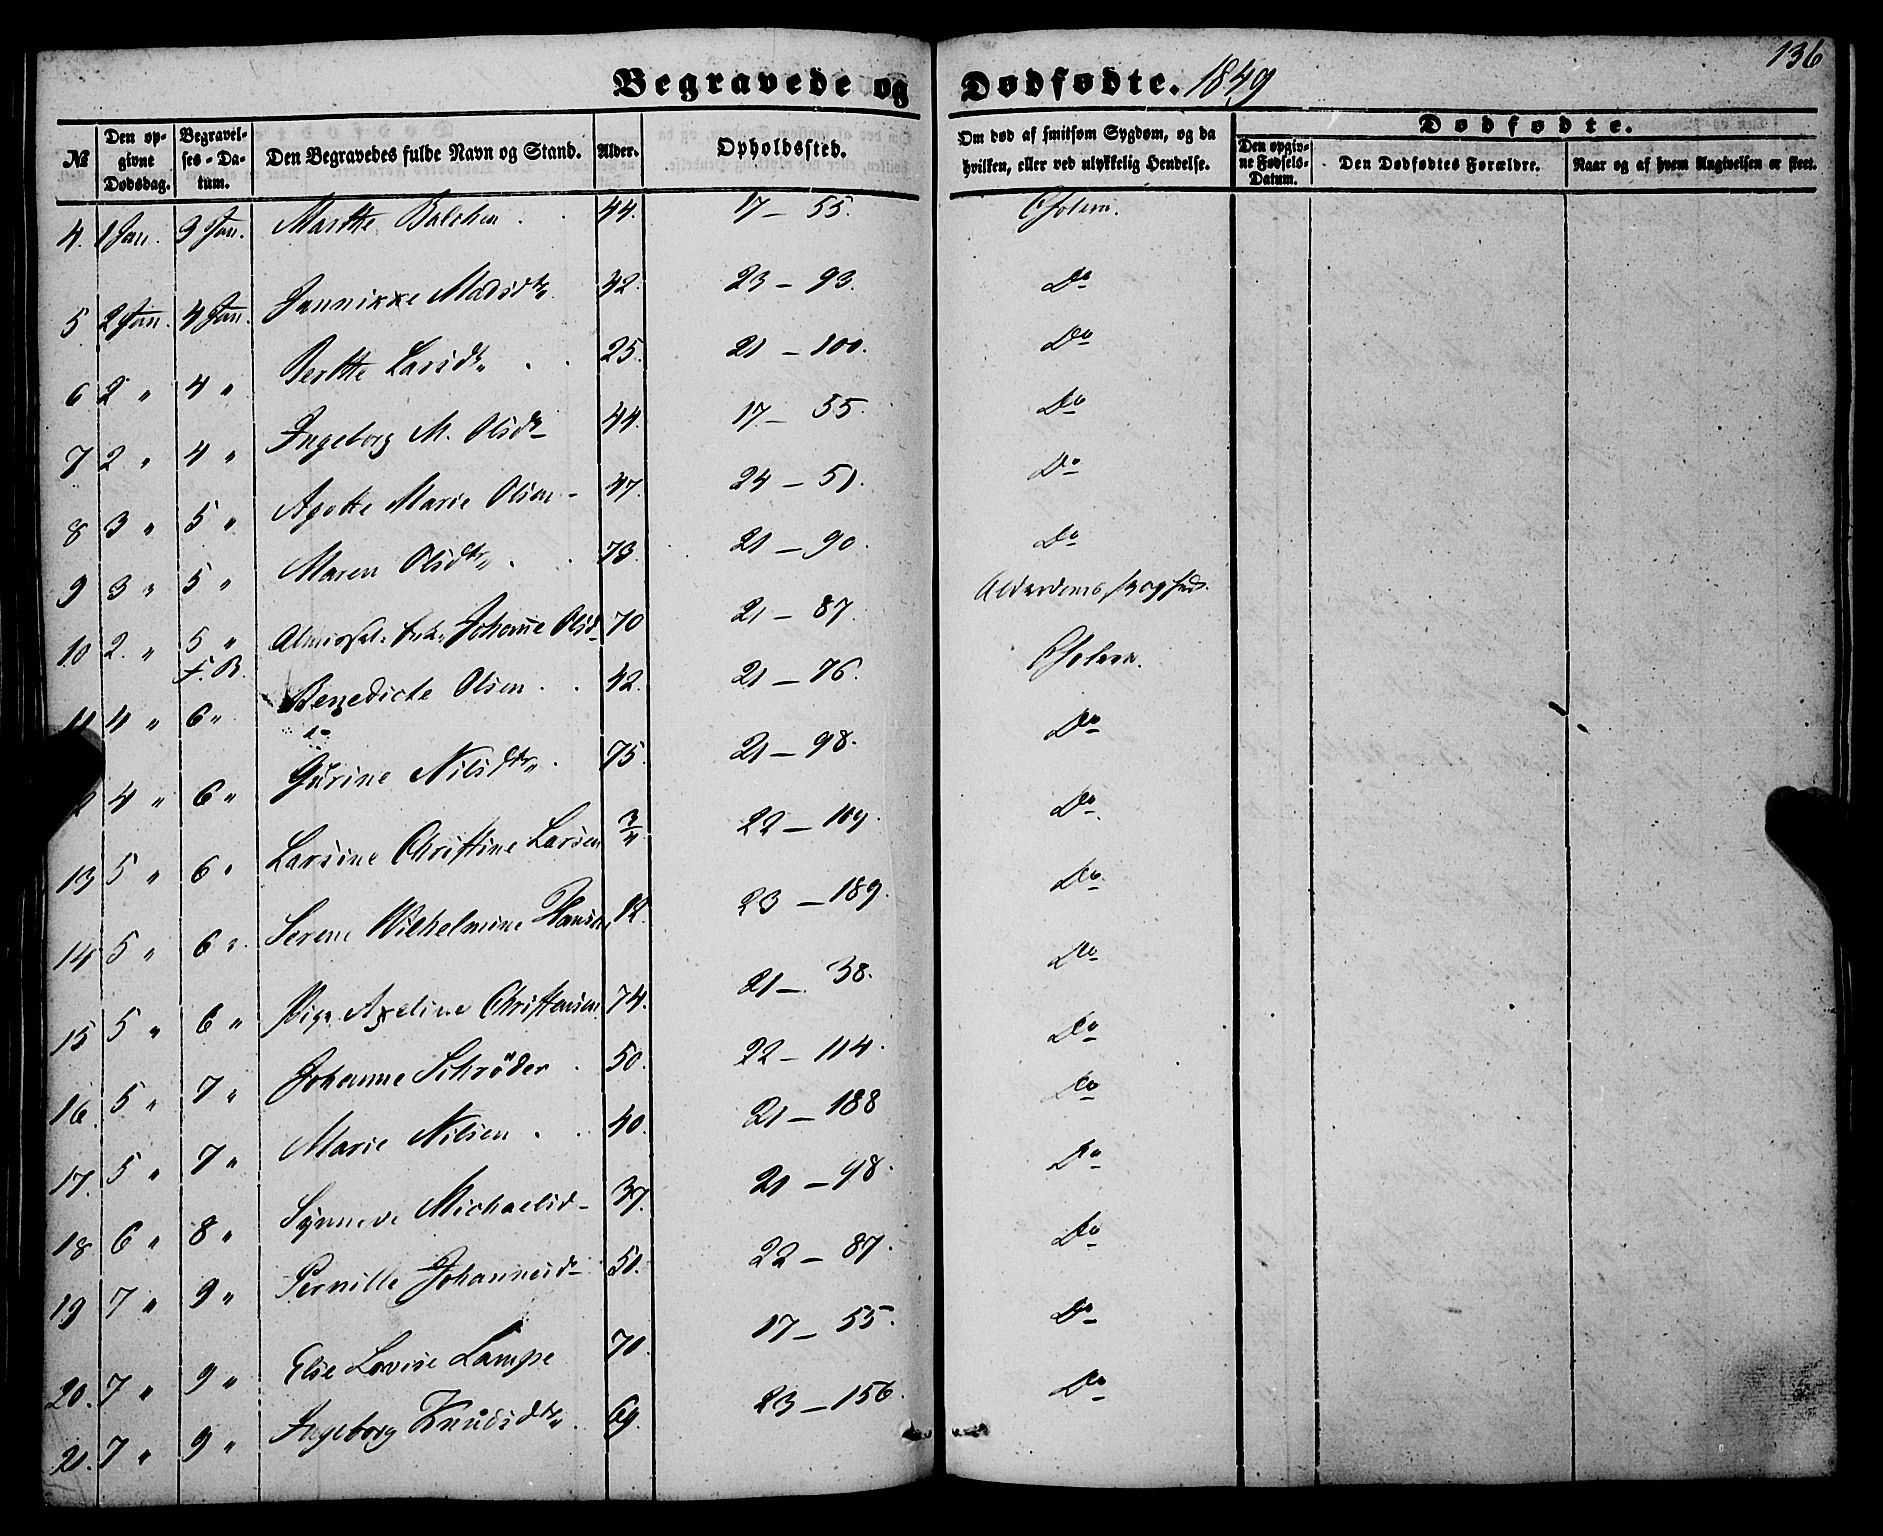 136
Begravede og Dødfødte. 1849
№ Den opgivne Dødsdag. Begravelses-Datum. Den Begravedes fulde Navn og Stand. Alder. Opholdssted. Om død af smitsom Sygdom, og da hvilken, eller ved ulykkelig Hendelse. Dødfødte. Den opgivne Fødsels-Datum. Den Dødfødtes Forældre. Naar og af hvem Angivelsen er skeet.
4. 1 Jan. 3 Jan. Marthe Balchen 44. 17 - 55. Cholera.
5 2 Jan. 4 Jan. Jannikke Madsdtr 42. 23 - 93. Do
6 2 " 4 " Berthe Larsdtr 25. 21 - 100. Do
7 2 " 4 " Ingeborg M. Olsdtr 44. 17 - 55. Do
8 3 " 5 " Agothe Marie Olsen 47. 24 - 51. Do
9 3 " 5 " Maren Olsdtr 73. 21 - 90. Do
10 2. " 5 " F. B. Johanne Olsd 70 21 - 87. Alderdoms
11 4 " 6 " Benedicte Olsen 42. 21 - 76. Cholera.
4 " 6 " Gurine Nilsdtr 75. 21 - 98. Do
13 5 " 6 " Larsine Christine Larsen 3/4 22 - 119. Do
14 5 " 6 " Serene Wilhelmine Hansen 12. 23 - 189. Do
15 5 " 6 " Pige Axeline Christensen 74. 21 - 38. Do
16. 5 " 7 " Johanne Schrøder 50. 22 - 114. Do
17. 5 " 7 " Marie Nilsen 40. 21 - 188 Do
18 6 " 8 " Synneve Michaelsd 37. 21 - 98. Do
19 7 " 9 " Pernille Johannesd 50. 22 - 87. Do
20. 7 " 9 " Else Lovise Lampe 70. 17 - 55. Do
21. 7 " 9 " Ingeborg Knudsdtr 69. 23 - 156. Do